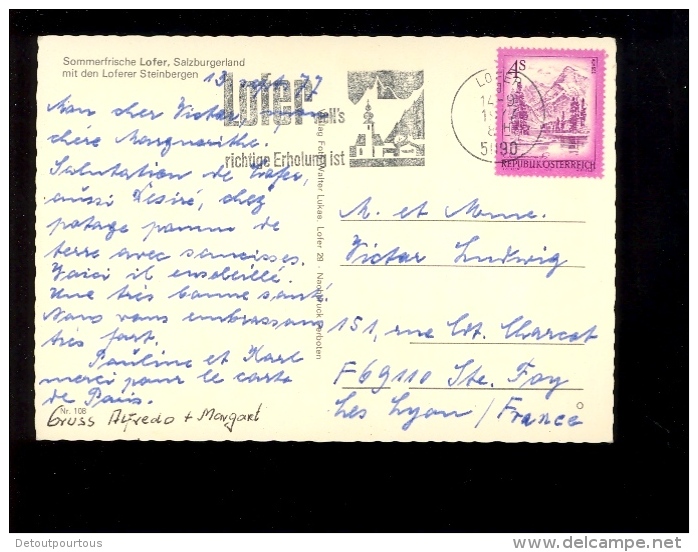 Sommerfrische Lofer, Salzburgerland
mit den Loferer Steinbergen
13 sept 77
Mon cher Victor
chère Marguerithe.
Salutation de Lofer,
aussi Desiré, chez
potage pomme de
terre avec saucisses.
Voici il ensoleillé.
Une très bonne santé.
Nous vous embrassons
très fort.
Pauline et Karl
merci pour le carte
de Paris.
Nr. 108
Gruss Alfredo + Margart
Lofer
weil's
richtige Erholung ist
Foto Walter Lukas, Lofer 29 - Nachdruck verboten
LOFER
14-9
1977
5090
4S
REPUBLIK ÖSTERREICH
M. et Mme.
Victor Ludwig
151, rue Cdt. Charcot
F 69110 Ste. Foy
Les Lyon / France
Detoutpourtous
www.delcampe.net